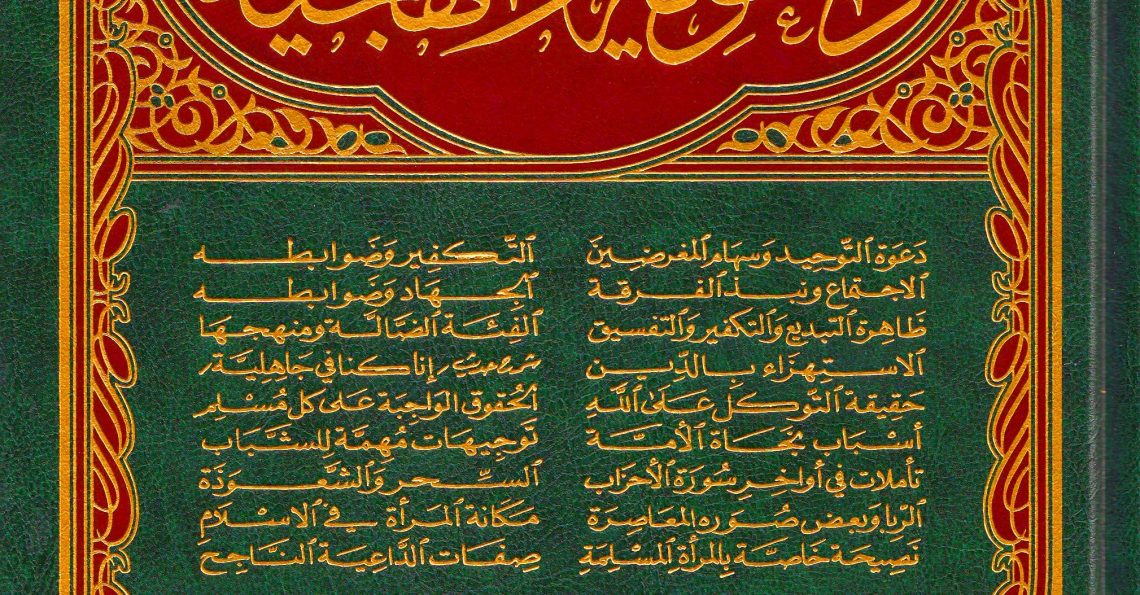 دَعوَة التَّوحِيد وَسِهَام المُغرضِينَ
الاجتماع ونبذ الفرقة
ظَاهِرة التبديع وَالتكفير وَالتفسيق
الاستهزَاء بالدِّين
حَقيقة التَّوكل عَلَى اللَّهِ
أسْبَاب نجَاة الأمَّة
تأملات في أواخِرِ سُورَة الأحزَاب
الرِّبا وَبعض صُوَره المعَاصِرَة
نَصِيحَة خَاصَّة بِالمرأة المُسْلِمَةِ
التَّكفِير وَضَوابطه
الجهَاد وَضَوابطه
الفِئَة الضَّالَّة ومنهجهَا
شرح حديث إنا كنا في جَاهِليَّة
الحُقوق الوَاجِبَة عَلى كل مُسْلِم
تَوجِيهَات مُهِمَّة لِلشَّبَاب
السِّحر وَالشَّعوَذَة
مَكانَة المَرأة في الاسْلَامِ
صِفات الدَّاعِيَة النَّاجِح